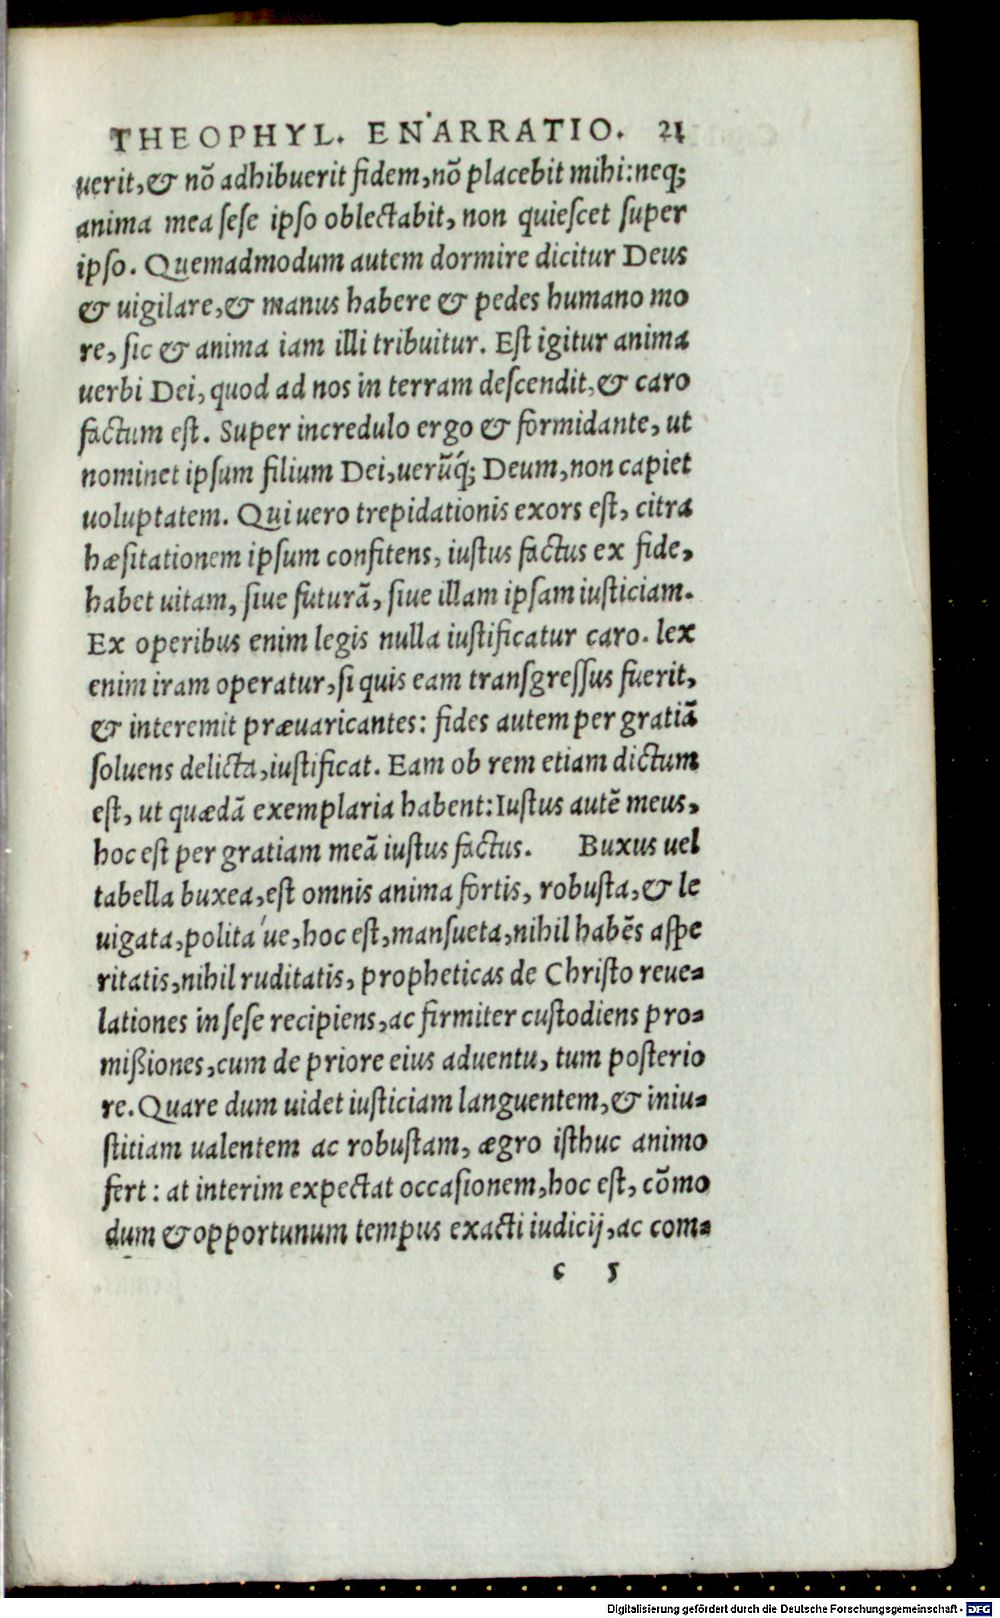 THEOPHYL. ENARRATIO. 21
uerit,& nõ adhibuerit fidem,nõ placebit mihi:neq;
anima mea sese ipso oblectabit, non quiescet super
ipso. Quemadmodum autem dormire dicitur Deus
& uigilare,& manus habere & pedes humano mo
re, sic & anima iam illi tribuitur. Est igitur anima
uerbi Dei, quod ad nos in terram descendit,& caro
factum est. Super incredulo ergo & formidante, ut
nominet ipsum filium Dei,uerũq́; Deum,non capiet
uoluptatem. Qui uero trepidationis exors est, citra
hæsitationem ipsum confitens, iustus factus ex fide,
habet uitam, siue futurã, siue illam ipsam iusticiam.
Ex operibus enim legis nulla iustificatur caro. lex
enim iram operatur,si quis eam transgressus fuerit,
& interemit præuaricantes: fides autem per gratiã
soluens delicta,iustificat. Eam ob rem etiam dictum
est, ut quædã exemplaria habent:Iustus autẽ meus,
hoc est per gratiam meã iustus factus. Buxus uel
tabella buxea,est omnis anima fortis, robusta,& le
uigata,polita´ue,hoc est,mansueta,nihil habẽs aspe
ritatis,nihil ruditatis, propheticas de Christo reue-
lationes in sese recipiens,ac firmiter custodiens pro-
mißiones,cum de priore eius aduentu, tum posterio
re. Quare dum uidet iusticiam languentem,& iniu-
stitiam ualentem ac robustam, ægro isthuc animo
fert: at interim expectat occasionem,hoc est, cõmo
dum & opportunum tempus exacti iudicij,ac com-
c 5
Digitalisierung gefördert durch die Deutsche Forschungsgemeinschaft - DFG